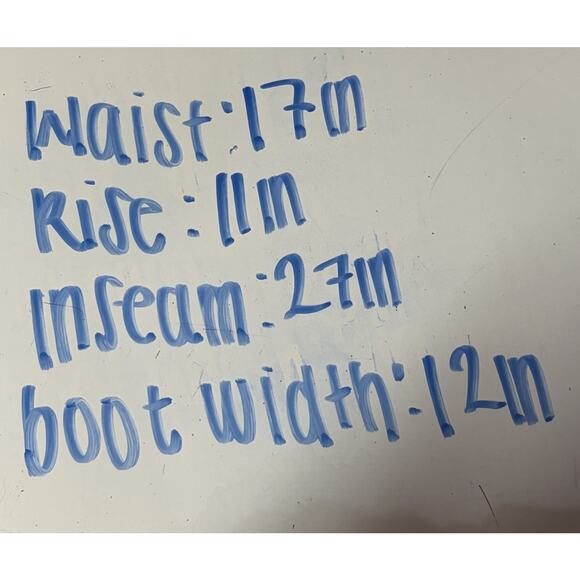 Waist: 17in
Rise: 11in
Inseam: 27in
boot width: 12in